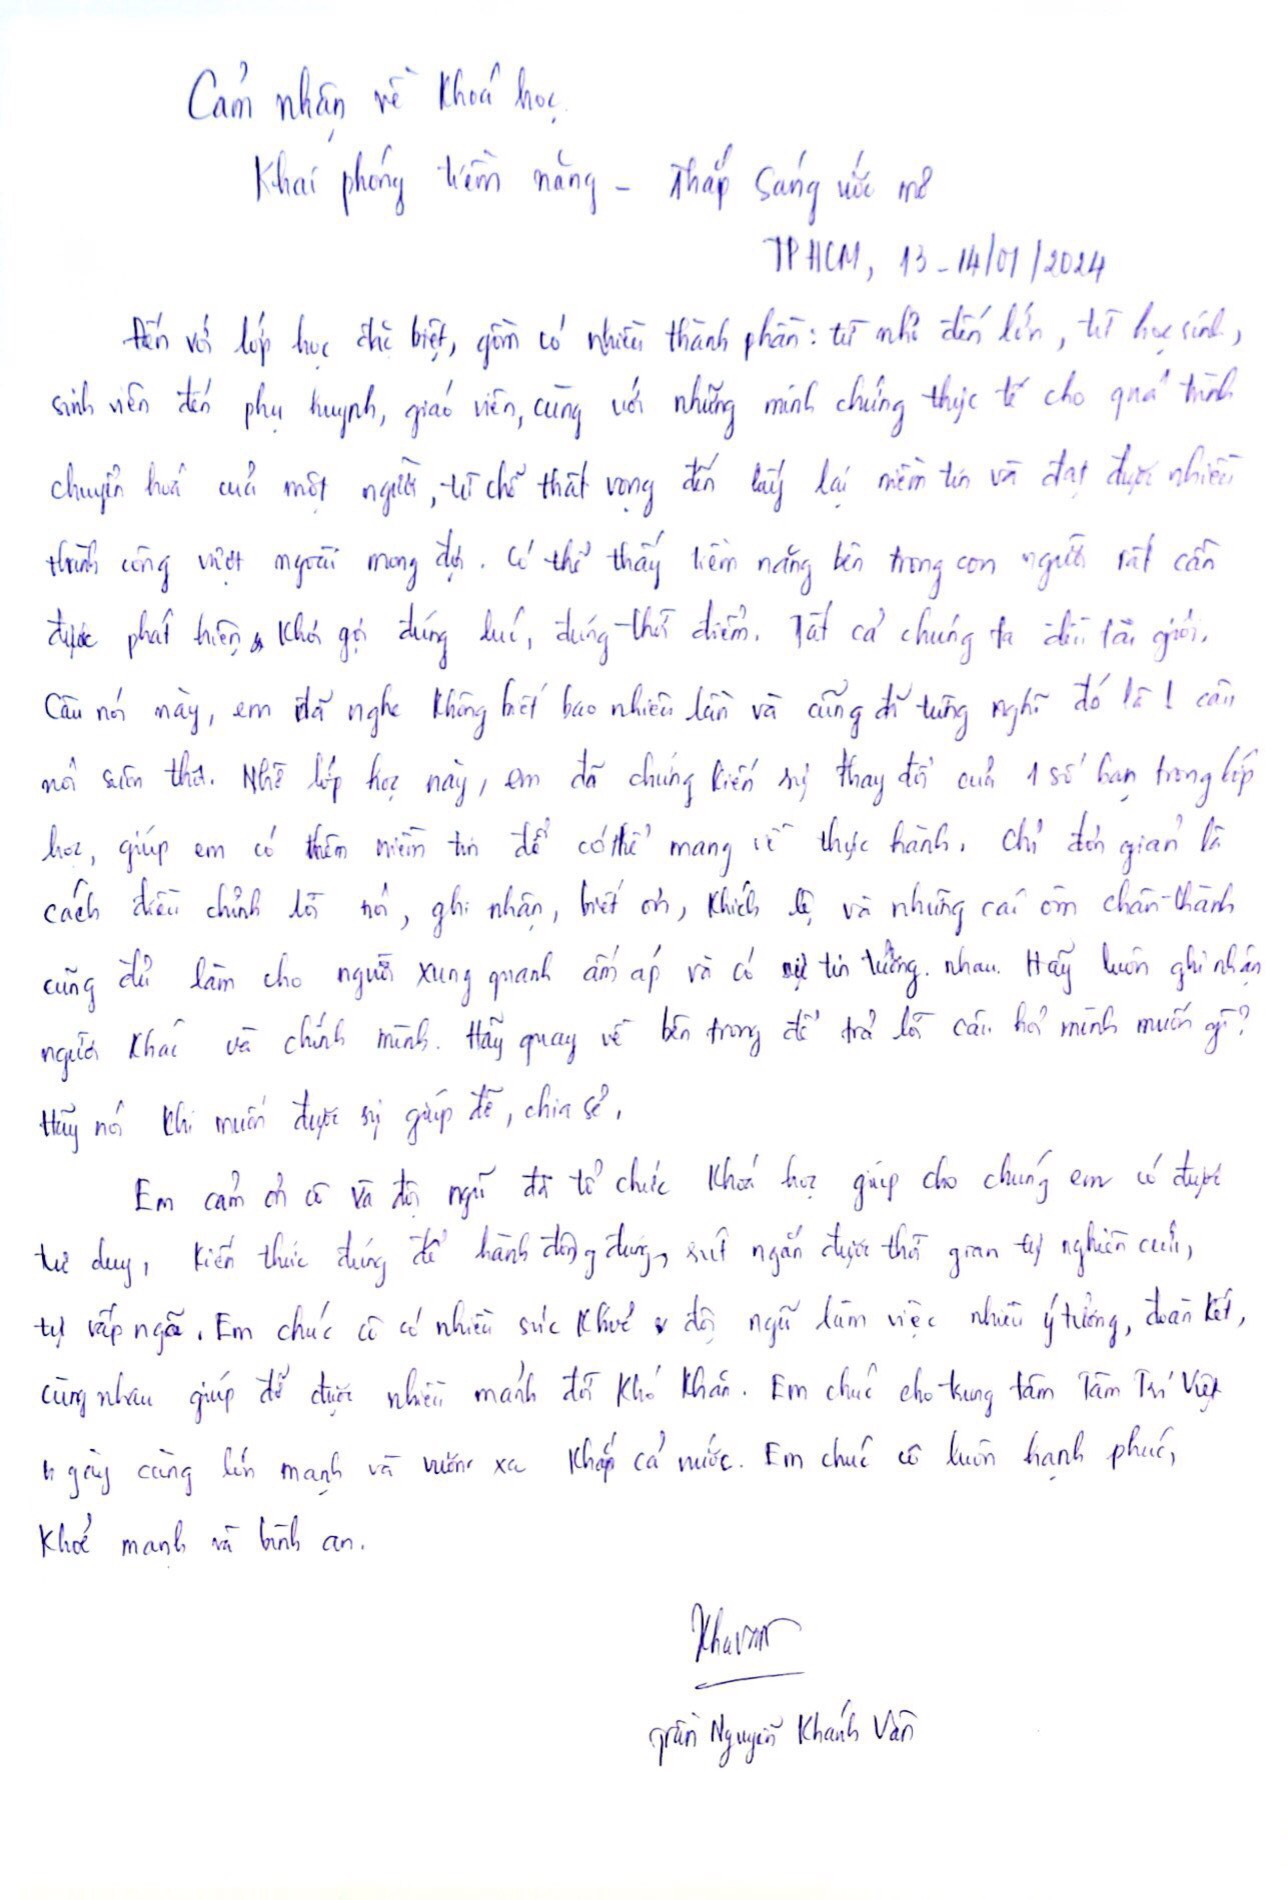 Cảm nhận về khoá học
Khai phóng tiềm năng - Thắp sáng ước mơ
TPHCM, 13-14/01/2024
Đến với lớp học đặc biệt, gồm có nhiều thành phần: từ nhỏ đến lớn, từ học sinh,
sinh viên đến phụ huynh, giáo viên, cùng với những minh chứng thực tế cho quá trình
chuyển hoá của một người, từ chỗ thất vọng đến lấy lại niềm tin và đạt được nhiều
thành công vượt ngoài mong đợi. Có thể thấy tiềm năng bên trong con người rất cần
được phát hiện & khơi gợi đúng lúc, đúng thời điểm. Tất cả chúng ta đều tài giỏi.
Câu nói này, em đã nghe không biết bao nhiêu lần và cũng đã từng nghĩ đó là 1 câu
nói suôn thôi. Nhờ lớp học này, em đã chứng kiến sự thay đổi của 1 số bạn trong lớp
học, giúp em có thêm niềm tin để có thể mang về thực hành. Chỉ đơn giản là
cách điều chỉnh lời nói, ghi nhận, biết ơn, khích lệ và những cái ôm chân thành
cũng đủ làm cho người xung quanh ấm áp và có sự tin tưởng nhau. Hãy luôn ghi nhận
người khác và chính mình. Hãy quay về bên trong để trả lời câu hỏi mình muốn gì?
Hãy nói khi muốn được sự giúp đỡ, chia sẻ.
Em cảm ơn cô và đội ngũ đã tổ chức khoá học giúp cho chúng em có được
tư duy, kiến thức đúng để hành động đúng, rút ngắn được thời gian tự nghiên cứu,
tự vấp ngã. Em chúc cô có nhiều sức khoẻ & đội ngũ làm việc nhiều ý tưởng, đoàn kết,
cùng nhau giúp đỡ được nhiều mảnh đời khó khăn. Em chúc cho trung tâm Tâm Trí Việt
ngày càng lớn mạnh và vươn xa khắp cả nước. Em chúc cô luôn hạnh phúc,
khoẻ mạnh và bình an.
Trần Nguyễn Khánh Vân